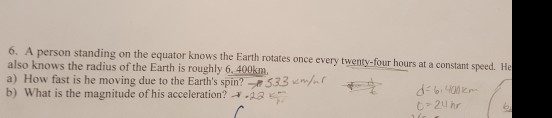 6. A person standing on the equator knows the Earth rotates once every twenty-four hours at a constant speed. He
also knows the radius of the Earth is roughly 6,400km.
a) How fast is he moving due to the Earth's spin? 533 km/hr
b) What is the magnitude of his acceleration?
d=6,400km
t=24hr